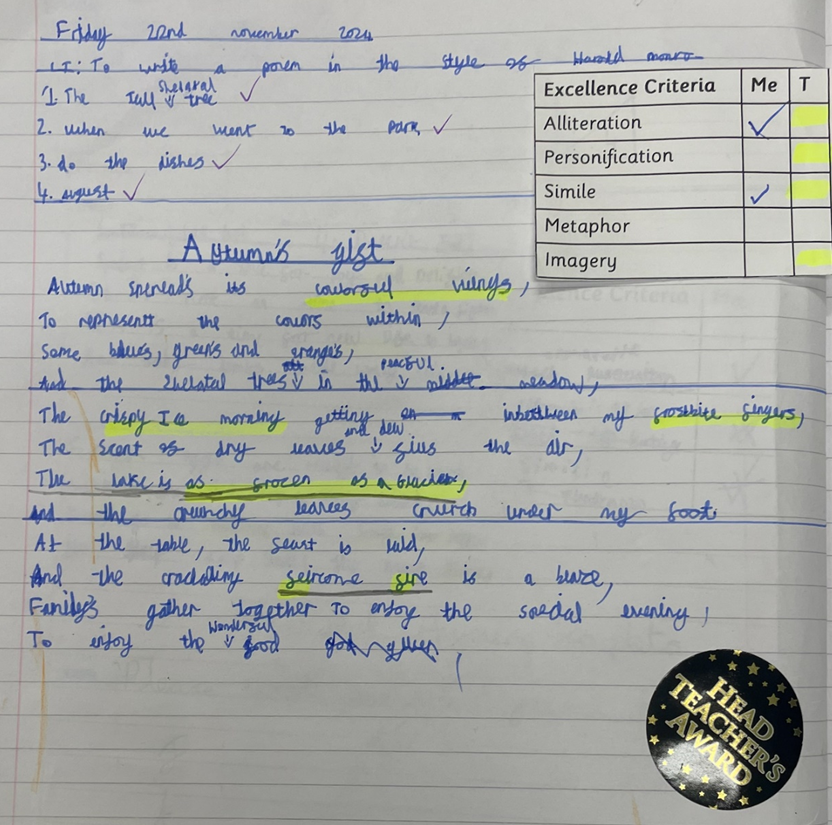 Friday 22nd november 2024
LI: To write a poem in the style of Harold monro
1. The Tall skelatal tree
2. When we went to the park
3. do the dishes
4. august
Excellence Criteria Me T
Alliteration
Personification
Simile
Metaphor
Imagery
Autumn's gift
Autumn spread's its
To represent the colours within,
Some blues, green's and orange's,
And the skelatal trees in the peaceful meadow,
The crispy Ice morning getting inbetween my frostbite fingers,
The scent of dry leaves and dew fills the air,
The lake is as frozen as a Glacier,
And the crunchy leaves crunch under my foot
At the table, the feast is laid,
And the crackling feircome fire is a blaze,
Family's gather together To enjoy the special evening,
To enjoy the wonderful food
HEAD TEACHER'S AWARD